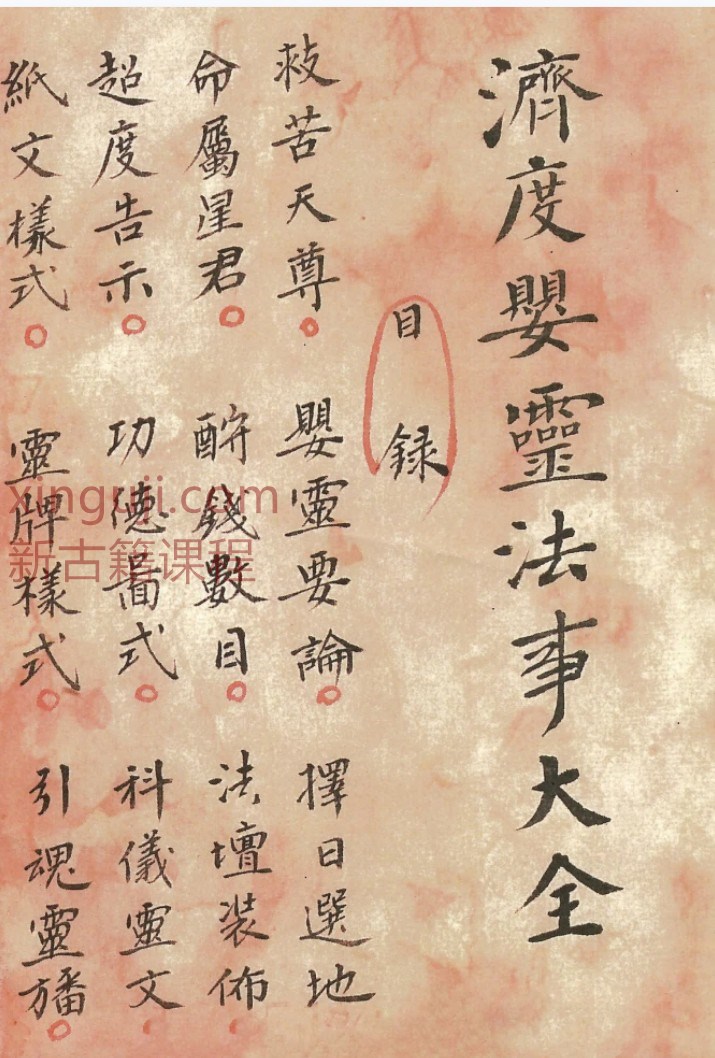 濟度嬰靈法事大全
目録
救苦天尊 嬰靈要論 擇日選地
命屬星君 酧錢數目 法壇裝佈
超度告示 功德啚式 科儀靈文
紙文樣式 靈牌樣式 引魂靈旛
xinguji.com
新古籍课程